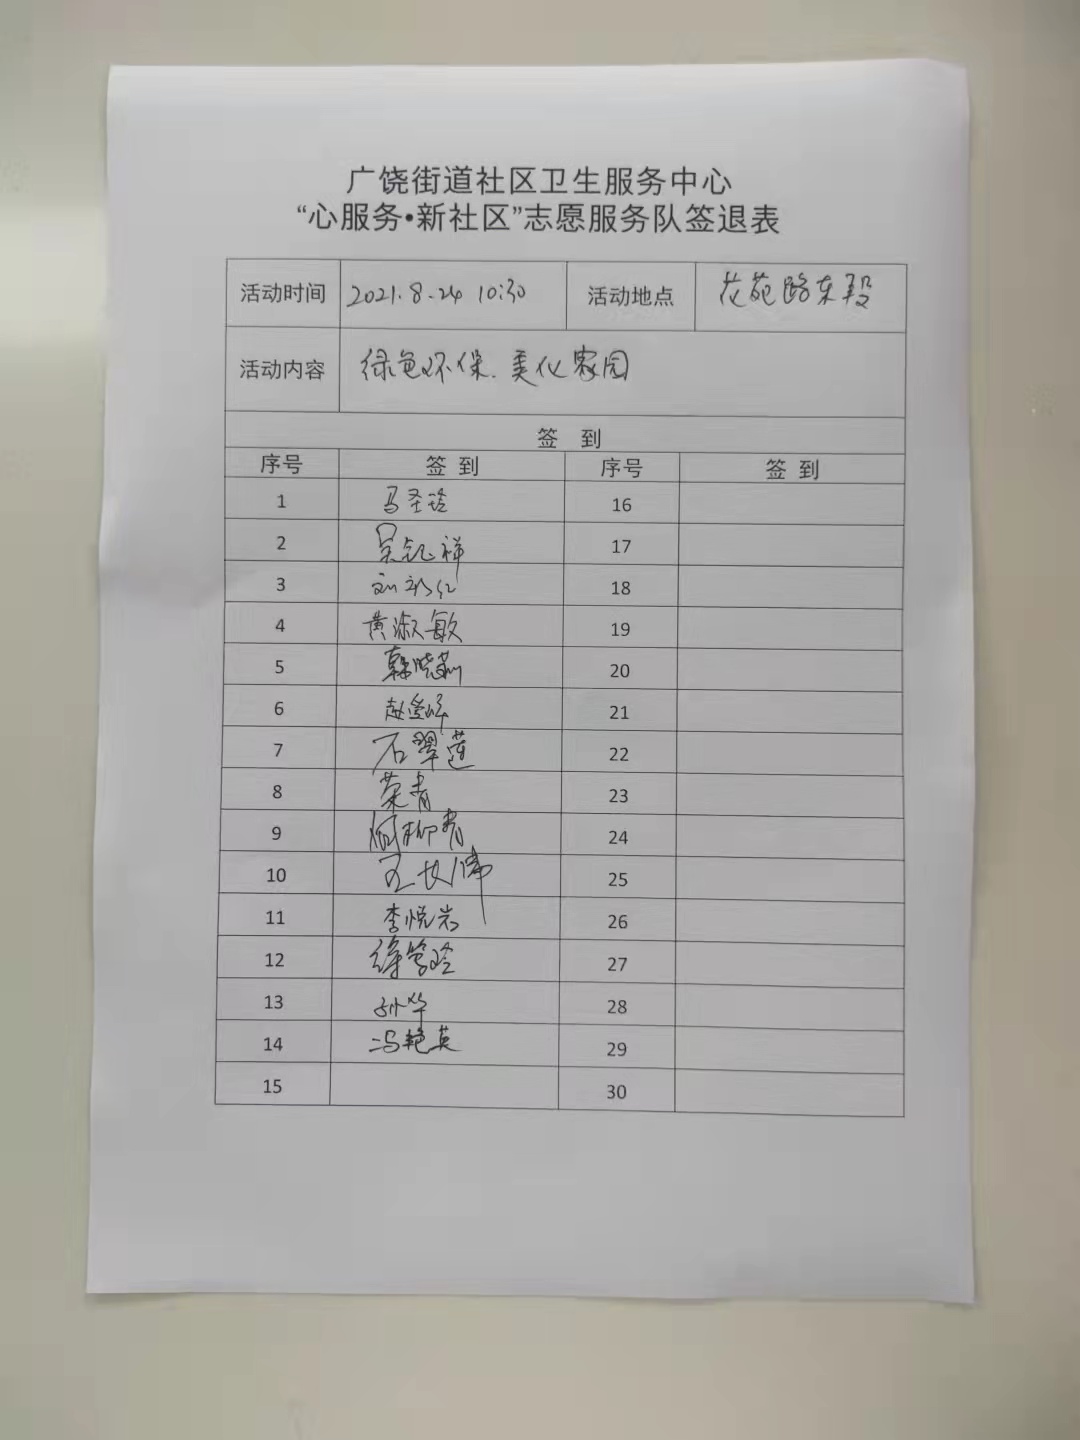 广饶街道社区卫生服务中心
“心服务•新社区”志愿服务队签退表
活动时间 2021.8.24 10:30 活动地点 花苑路东段
活动内容 绿色环保、美化家园
签 到
序号 签 到 序号 签 到
1 马圣玲 16
2 吴钰祥 17
3 刘彩红 18
4 黄淑敏 19
5 韩晓莉 20
6 赵爱婷 21
7 石翠莲 22
8 荣青 23
9 何柳青 24
10 25
11 李悦岩 26
12 27
13 孙华 28
14 冯艳英 29
15 30